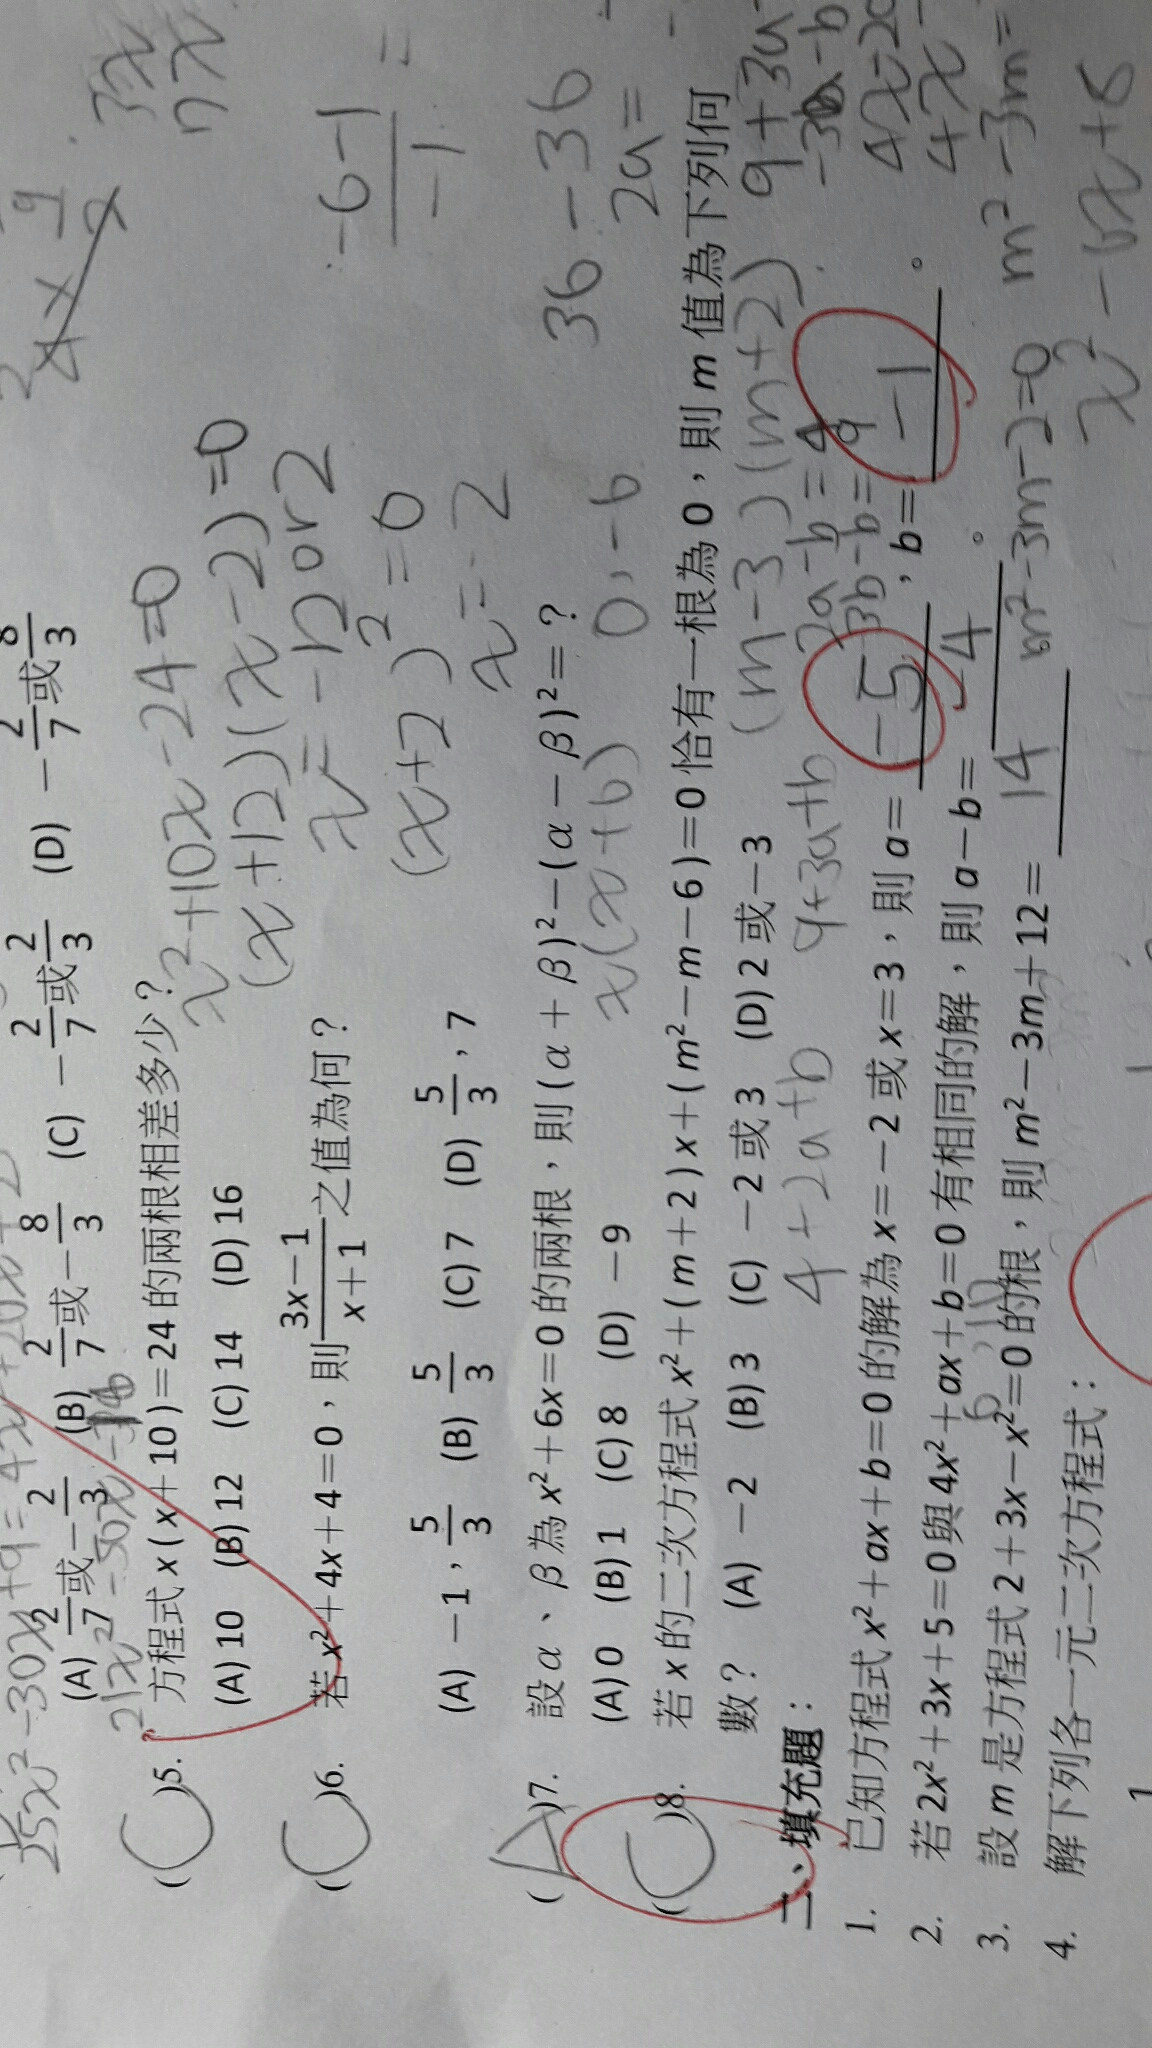 25x²-30x+9=4x²+20x
(A) 2/7或-2/3 (B) 2/7或-8/3 (C) -2/7或2/3 (D) -2/7或8/3
21x²-50x-16
(C)5. 方程式x(x+10)=24的兩根相差多少？
x²+10x-24=0
(A)10 (B)12 (C)14 (D)16
(x+12)(x-2)=0
x=-12 or 2
(C)6. 若x²+4x+4=0，則(3x-1)/(x+1)之值為何？
(x+2)²=0
x=-2
-6-1
-1
=
(A)-1，5/3 (B)5/3 (C)7 (D)5/3，7
(A)7. 設α、β為x²+6x=0的兩根，則(α+β)²-(α-β)²=？
36-36
(A)0 (B)1 (C)8 (D)-9
x(x+6) 0,-6
2a=
(C)8. 若x的二次方程式x²+(m+2)x+(m²-m-6)=0恰有一根為0，則m值為下列何
數？ (A)-2 (B)3 (C)-2或3 (D)2或-3
(m-3)(m+2)
二、填充題：
4+2a+b 9+3a+b 2a-b=4
3b-b=9
1. 已知方程式x²+ax+b=0的解為x=-2或x=3，則a= -5 ，b= -1 。
2. 若2x²+3x+5=0與4x²+ax+b=0有相同的解，則a-b= -4 。
6 10
3. 設m是方程式2+3x-x²=0的根，則m²-3m+12= 14
m²-3m-2=0 m²-3m=
4. 解下列各一元二次方程式：
x²-6x+8